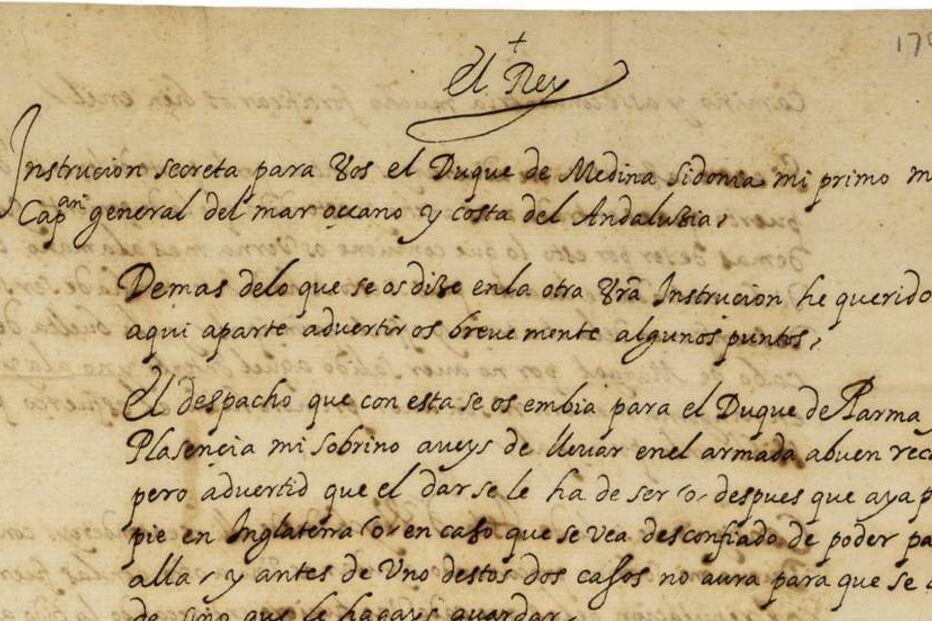 170
+
El Rey
Instrucion secreta para Vos el Duque de Medina Sidonia mi primo m
Capan general del mar oçeano y costa del Andaluzia,
Demas delo que se os dize enla otra Vrã Instrucion he querido
aqui aparte advertir os breve mente algunos puntos,
El despacho que con esta se os embia para el Duque de Parma y
Plasencia mi sobrino aveys de llevar enel armada abuen rec
pero advertid que el dar se le ha de ser o, despues que aya p
pie en Inglaterra o en caso que se vea desconfiado de poder pa
alla, y antes de Uno destos dos casos no aura para que se
de sino que le hagays guardar,